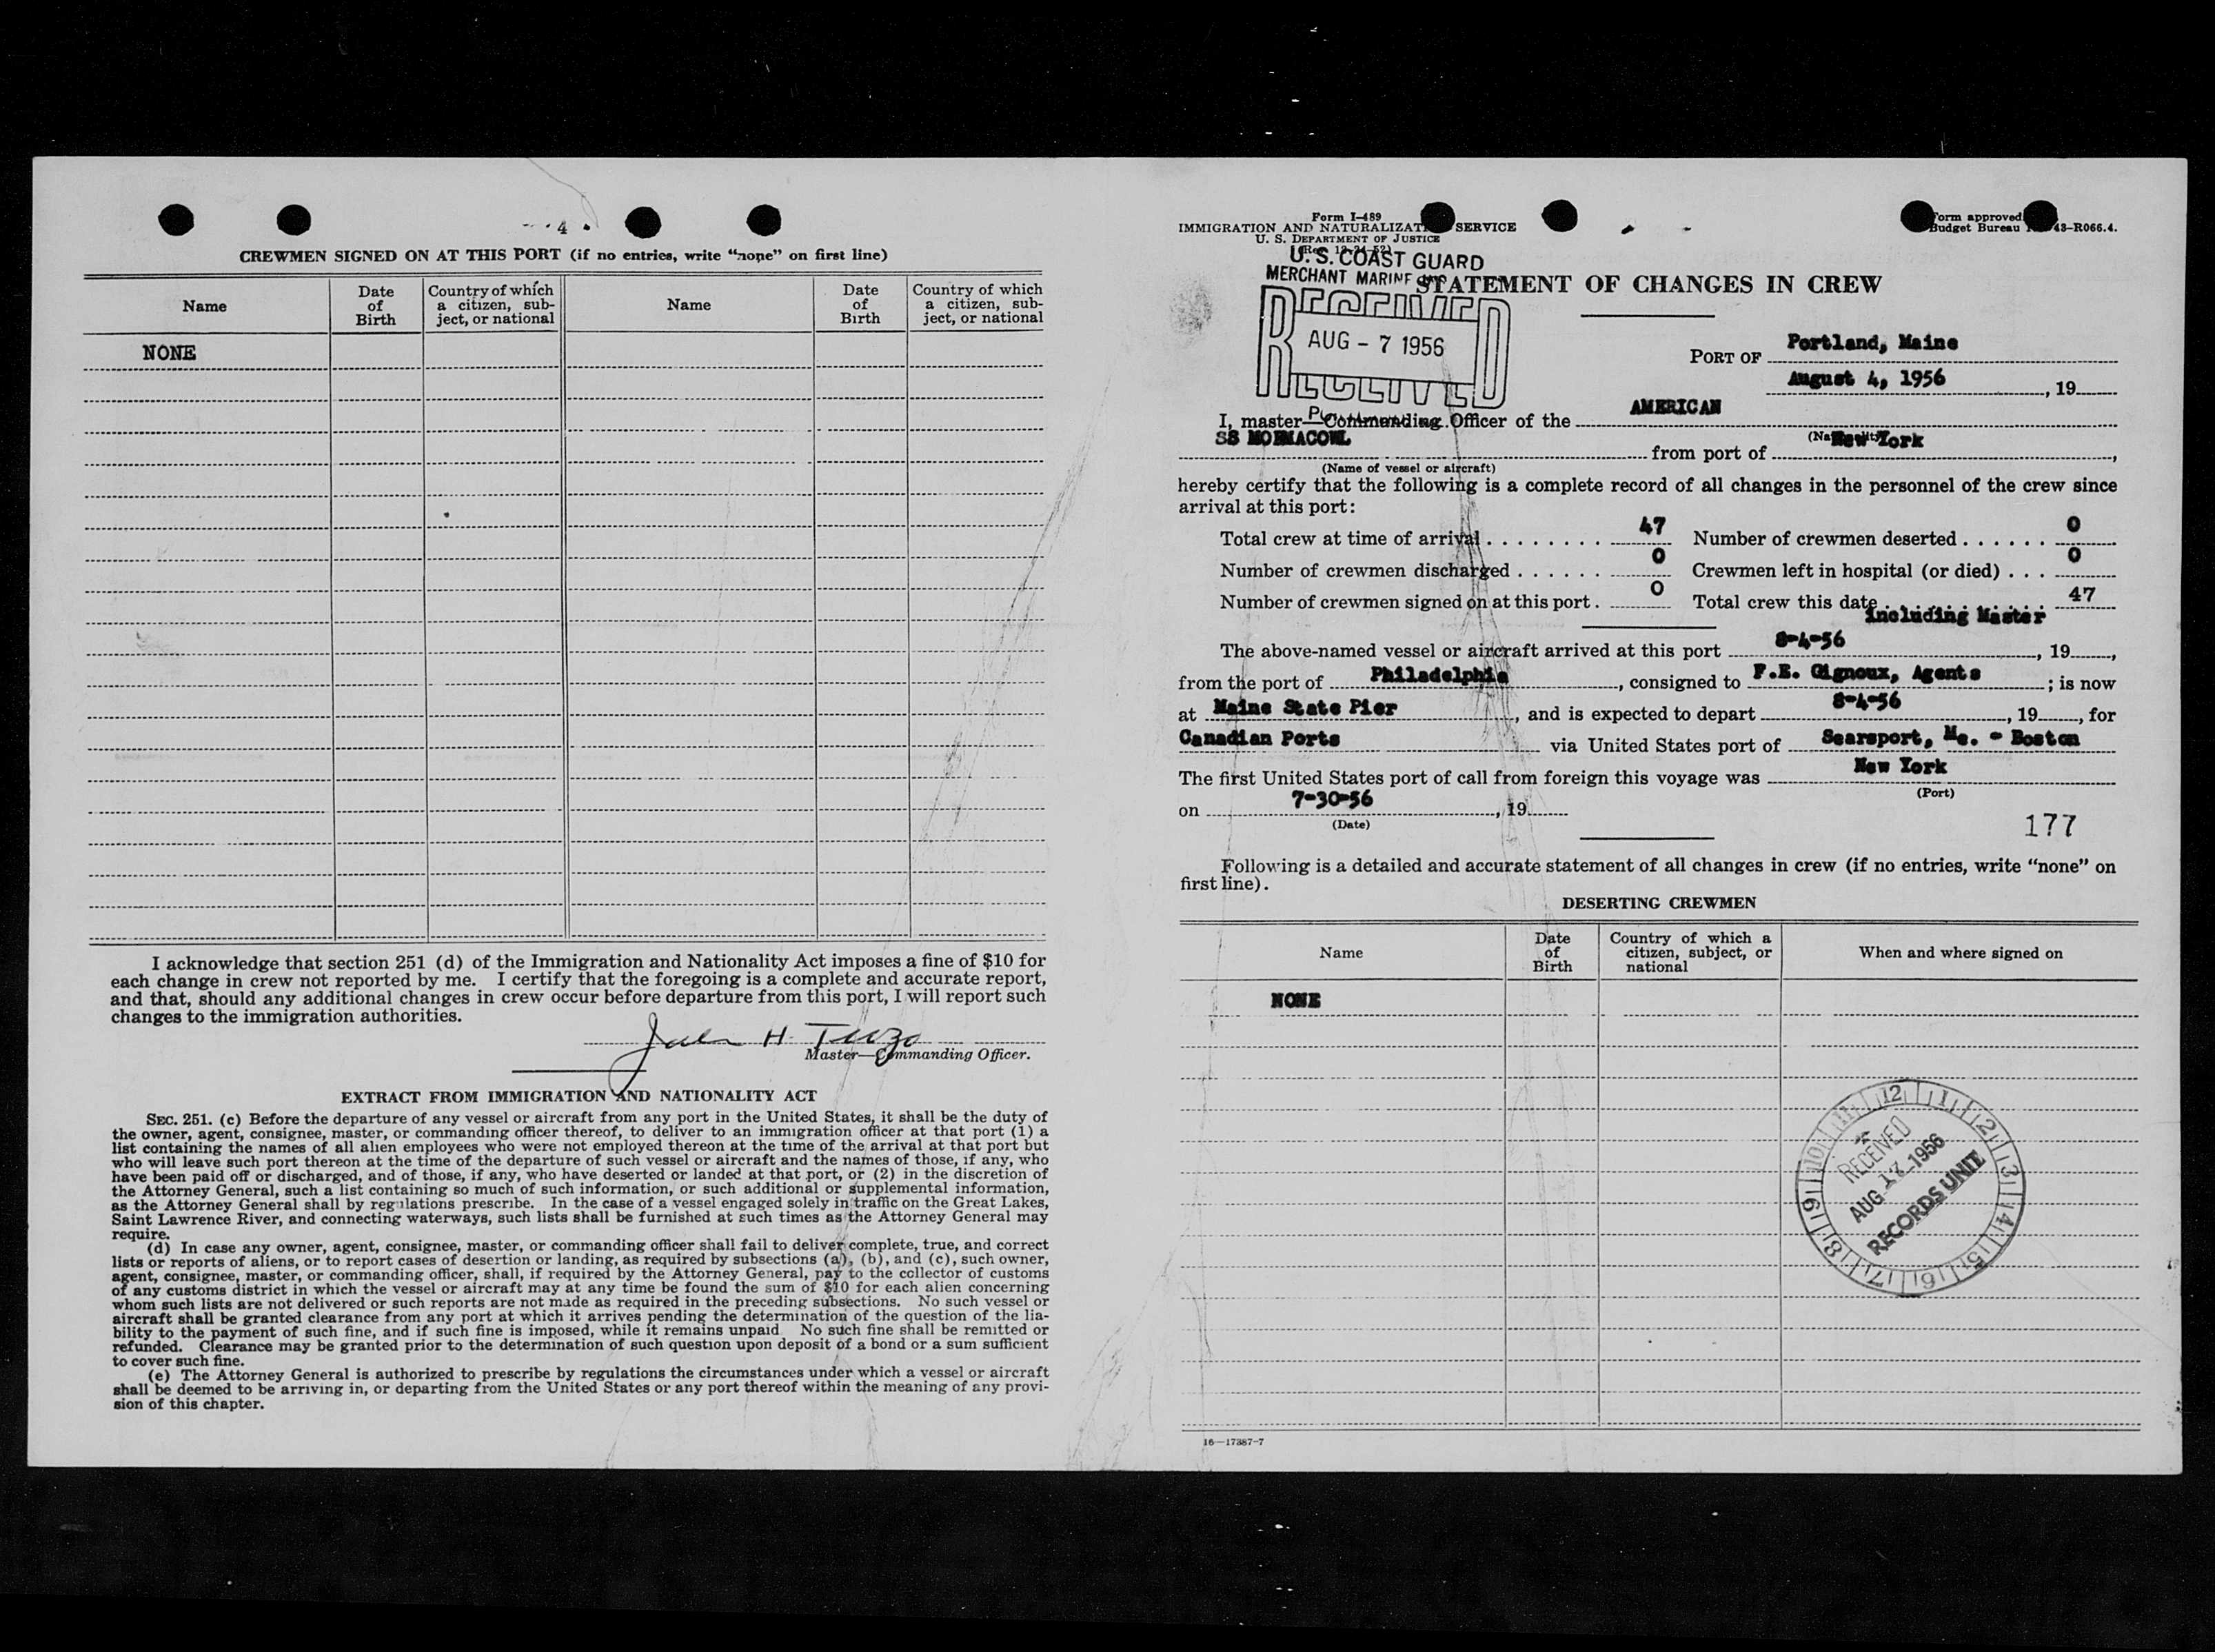 4
CREWMEN SIGNED ON AT THIS PORT (if no entries, write "none" on first line)
Name
Date of Birth
Country of which a citizen, subject, or national
Name
Date of Birth
Country of which a citizen, subject, or national
NONE
I acknowledge that section 251 (d) of the Immigration and Nationality Act imposes a fine of $10 for
each change in crew not reported by me. I certify that the foregoing is a complete and accurate report,
and that, should any additional changes in crew occur before departure from this port, I will report such
changes to the immigration authorities.
H.
Master—Commanding Officer.
EXTRACT FROM IMMIGRATION AND NATIONALITY ACT
SEC. 251. (c) Before the departure of any vessel or aircraft from any port in the United States, it shall be the duty of
the owner, agent, consignee, master, or commanding officer thereof, to deliver to an immigration officer at that port (1) a
list containing the names of all alien employees who were not employed thereon at the time of the arrival at that port but
who will leave such port thereon at the time of the departure of such vessel or aircraft and the names of those, if any, who
have been paid off or discharged, and of those, if any, who have deserted or landed at that port, or (2) in the discretion of
the Attorney General, such a list containing so much of such information, or such additional or supplemental information,
as the Attorney General shall by regulations prescribe. In the case of a vessel engaged solely in traffic on the Great Lakes,
Saint Lawrence River, and connecting waterways, such lists shall be furnished at such times as the Attorney General may
require.
(d) In case any owner, agent, consignee, master, or commanding officer shall fail to deliver complete, true, and correct
lists or reports of aliens, or to report cases of desertion or landing, as required by subsections (a), (b), and (c), such owner,
agent, consignee, master, or commanding officer, shall, if required by the Attorney General, pay to the collector of customs
of any customs district in which the vessel or aircraft may at any time be found the sum of $10 for each alien concerning
whom such lists are not delivered or such reports are not made as required in the preceding subsections. No such vessel or
aircraft shall be granted clearance from any port at which it arrives pending the determination of the question of the lia-
bility to the payment of such fine, and if such fine is imposed, while it remains unpaid No such fine shall be remitted or
refunded. Clearance may be granted prior to the determination of such question upon deposit of a bond or a sum sufficient
to cover such fine.
(e) The Attorney General is authorized to prescribe by regulations the circumstances under which a vessel or aircraft
shall be deemed to be arriving in, or departing from the United States or any port thereof within the meaning of any provi-
sion of this chapter.
Form I-489
IMMIGRATION AND NATURALIZAT SERVICE
U. S. DEPARTMENT OF JUSTICE
(Rev. 12-24-52)
Form approved
Budget Bureau 43-R066.4.
U.S. COAST GUARD
MERCHANT MARINE
STATEMENT OF CHANGES IN CREW
RECEIVED
AUG - 7 1956
RECEIVED
PORT OF Portland, Maine
August 4, 1956, 19
I, master—Commanding Officer of the AMERICAN
SS MORMACOWL from port of New York,
(Name of vessel or aircraft)
hereby certify that the following is a complete record of all changes in the personnel of the crew since
arrival at this port:
Total crew at time of arrival 47 Number of crewmen deserted 0
Number of crewmen discharged 0 Crewmen left in hospital (or died) 0
Number of crewmen signed on at this port. 0 Total crew this date 47
including Master
The above-named vessel or aircraft arrived at this port 8-4-56, 19,
from the port of Philadelphia, consigned to F.E. Gignoux, Agents; is now
at Maine State Pier, and is expected to depart 8-4-56, 19, for
Canadian Ports via United States port of Searsport, Me. - Boston
The first United States port of call from foreign this voyage was New York
(Port)
on 7-30-56, 19
(Date)
177
Following is a detailed and accurate statement of all changes in crew (if no entries, write "none" on
first line).
DESERTING CREWMEN
Name
Date of Birth
Country of which a citizen, subject, or national
When and where signed on
NONE
12 1 2 3 4 5 6 7 8 9 10 11
RECEIVED
AUG 17 1956
RECORDS UNIT
16—17387-7